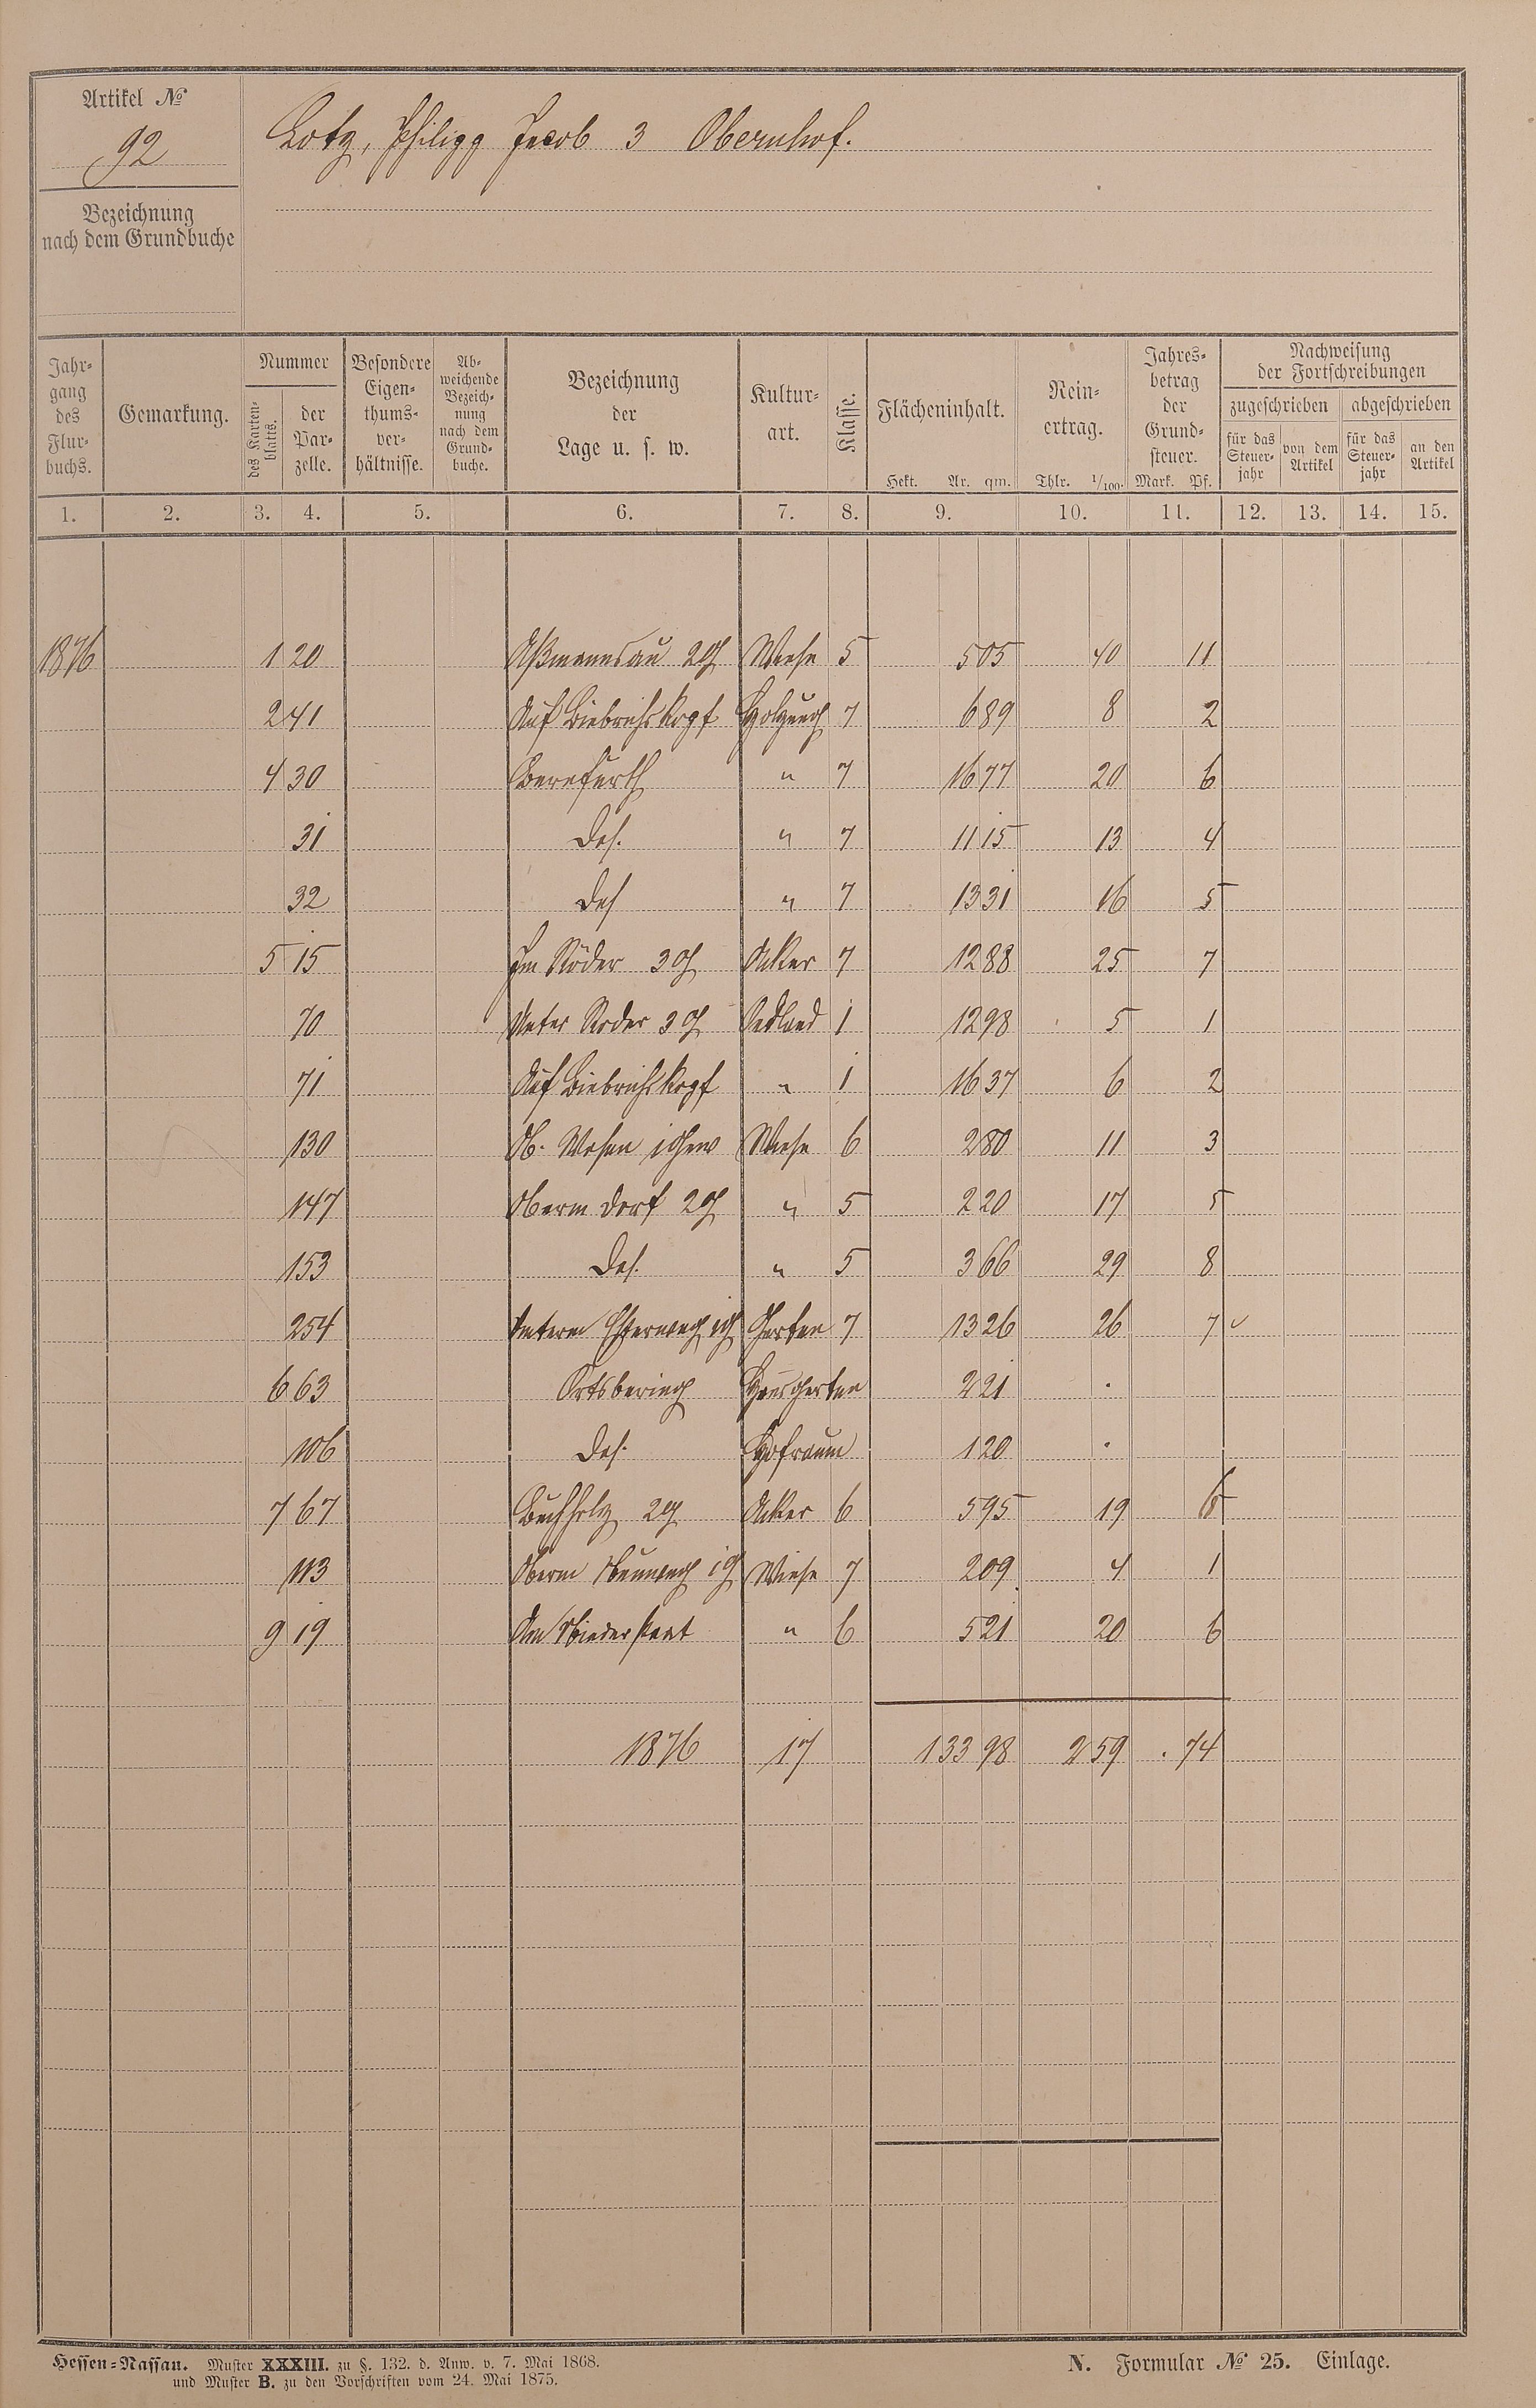 Artikel №
92
Lotz, Philipp Jacob 3 Obernhof.
Bezeichnung
nach dem Grundbuche
Jahrgang des Flurbuchs. Gemarkung. Nummer des Kartenblatts. der Parzelle. Besondere Eigenthumsverhältnisse. Abweichende Bezeichnung nach dem Grundbuche. Bezeichnung der Lage u. s. w. Kulturart. Klasse. Flächeninhalt. Hekt. Ar. qm. Reinertrag. Thlr. 1/100. Jahresbetrag der Grundsteuer. Mark. Pf. Nachweisung der Fortschreibungen zugeschrieben für das Steuerjahr von dem Artikel abgeschrieben für das Steuerjahr an den Artikel
1. 2. 3. 4. 5. 6. 7. 8. 9. 10. 11. 12. 13. 14. 15.
1876 1 20 Aßmannsau 2g Wiese 5 5 05 40 11
2 41 Auf Biebrichskopf Holzung 7 6 89 8 2
4 30 7 16 77 20 6
31 Das. " 7 11 15 13 4
32 Das " 7 13 31 16 5
5 15 Im Röder 3g Acker 7 12 88 25 7
70 Unter Roder 3g Oedland 1 12 98 5 1
71 Auf Biebrichskopf " 1 16 37 6 2
130 Ob. Wiese 6 2 80 11 3
147 Oberm Dorf 2g " 5 2 20 17 5
153 Das. " 5 3 66 29 8
254 Unterm Garten 7 13 26 26 7
6 63 Ortsbering Hausgarten 2 21 .
106 Das. Hofraum 1 20 .
7 67 Buchholz 2g Acker 6 5 95 19 6
113 Oberm Wiese 7 2 09 4 1
9 19 Am " 6 5 21 20 6
1876 17 1 33 98 2 59 . 74
Hessen-Nassau. Muster XXXIII. zu §. 132. d. Anw. v. 7. Mai 1868.
und Muster B. zu den Vorschriften vom 24. Mai 1875.
N. Formular № 25. Einlage.